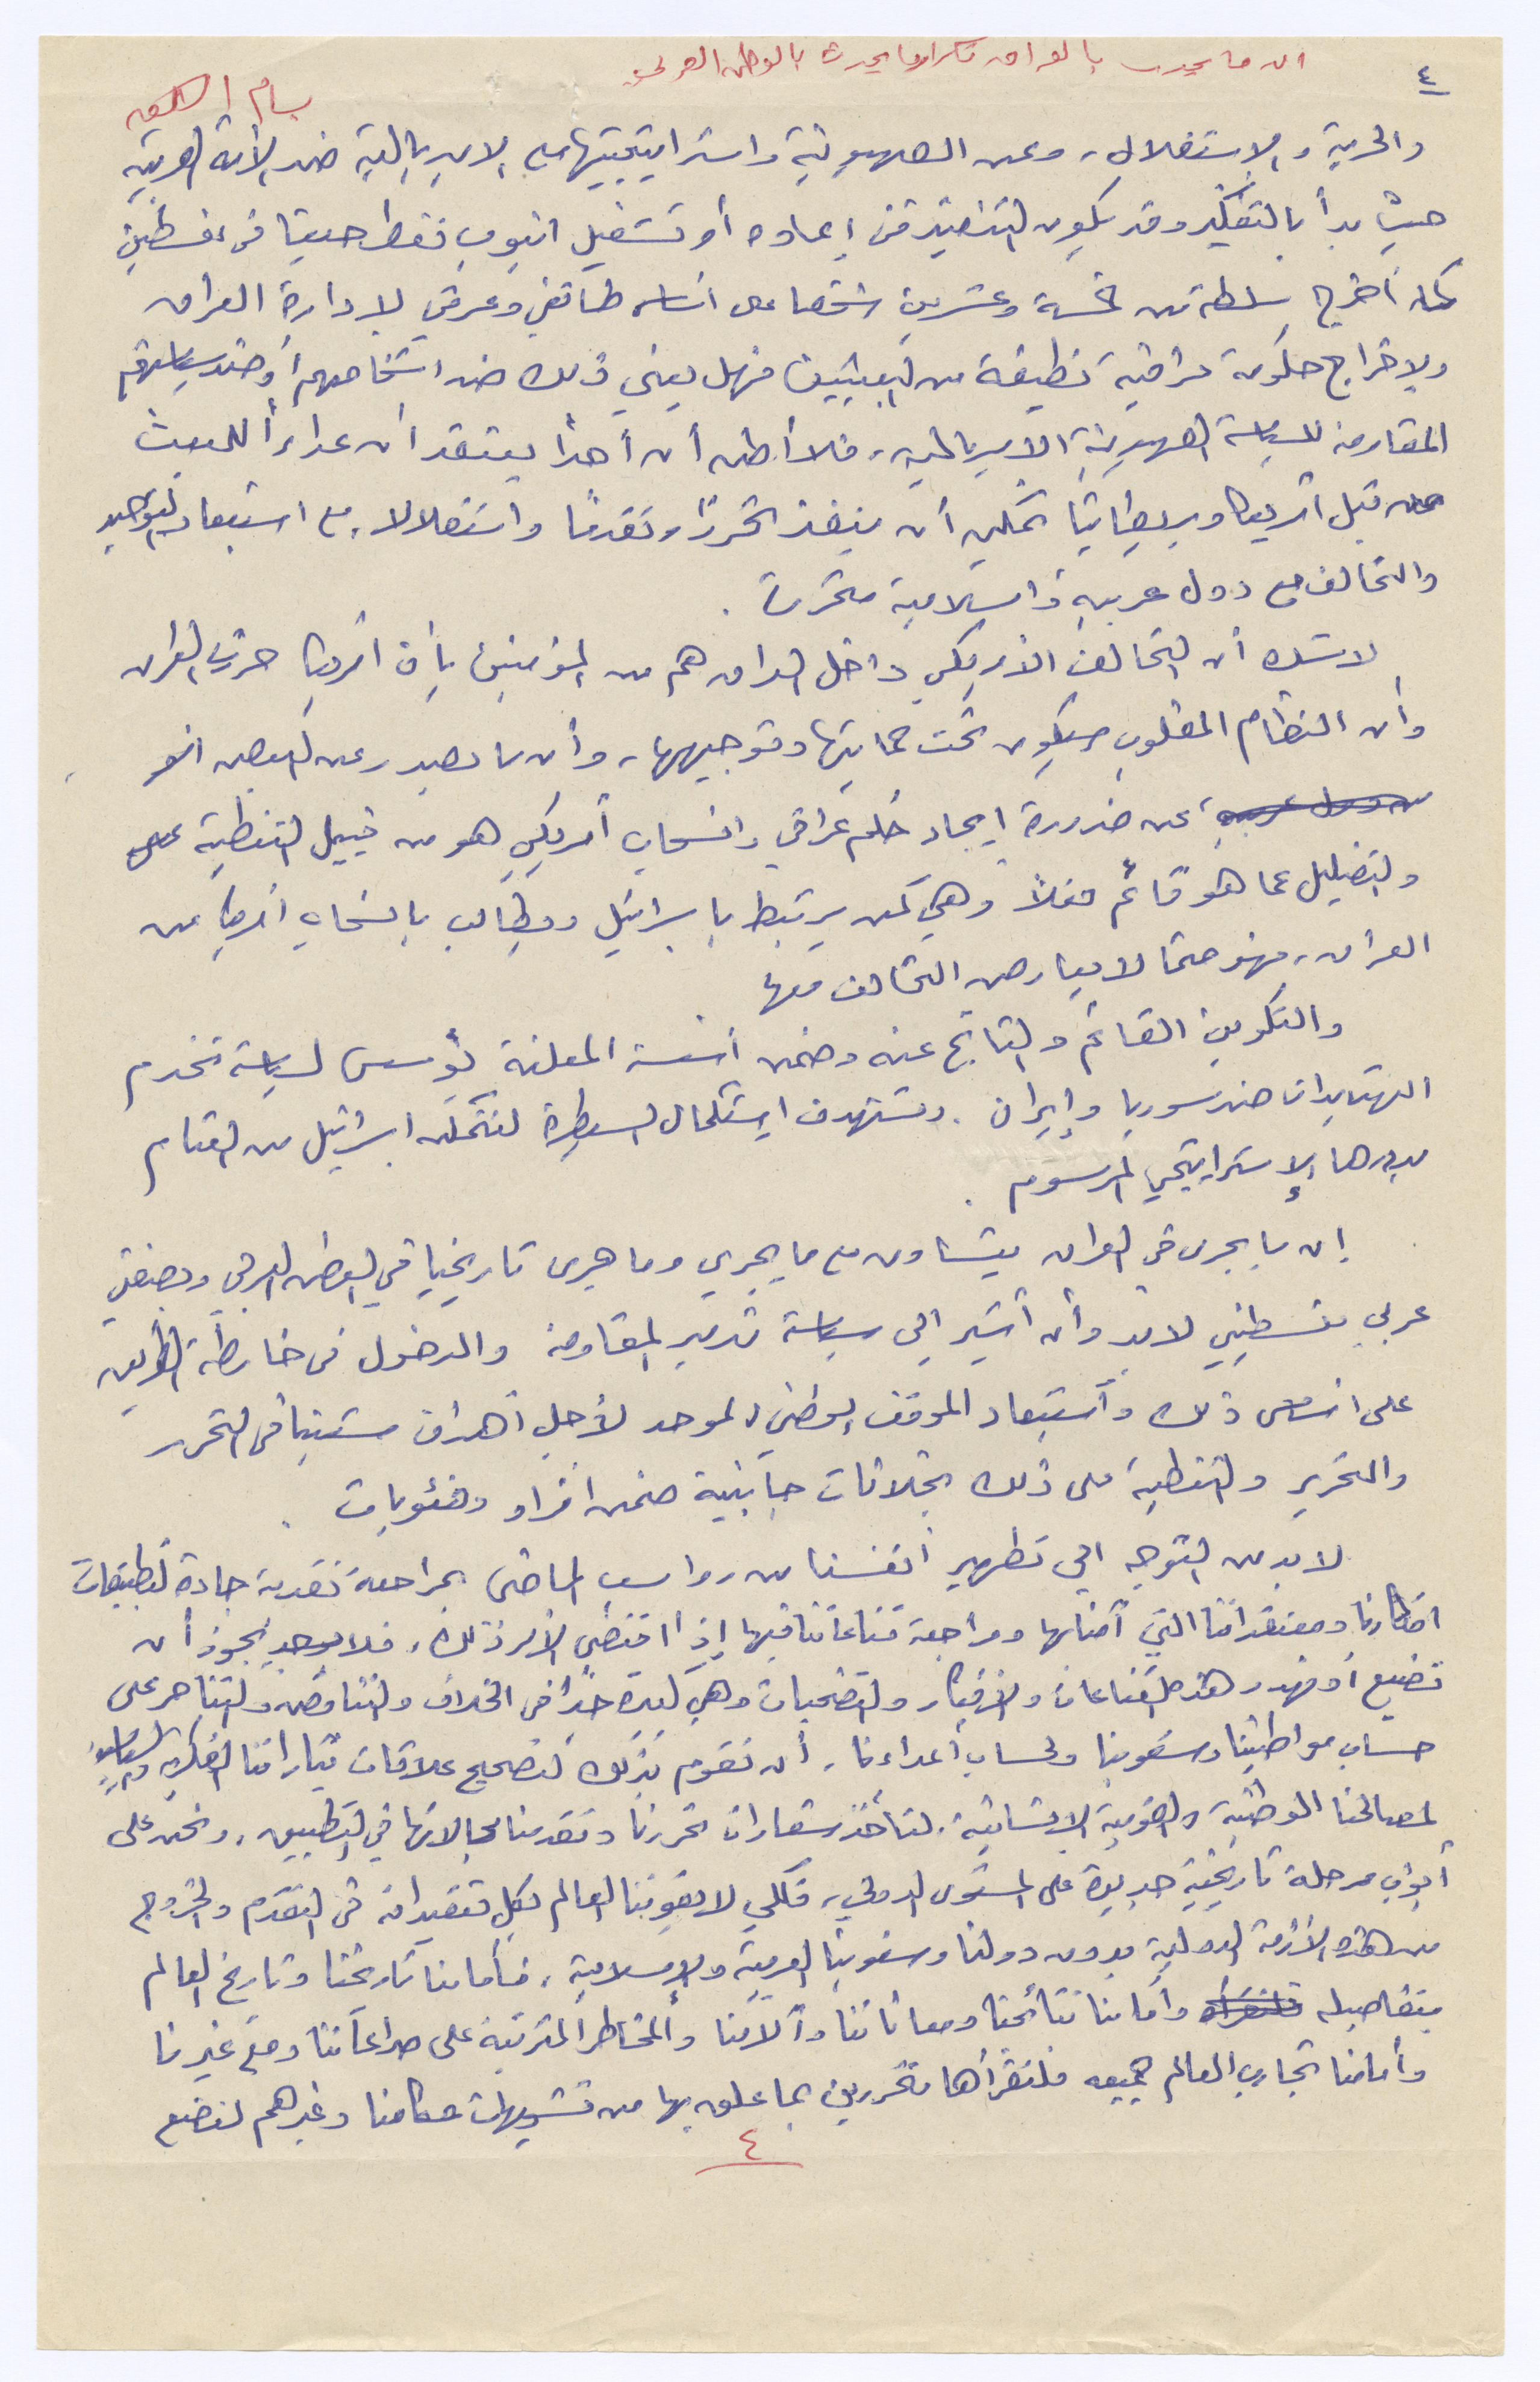 ان ما يجري بالعراق تكرار لما يحدث بالوطن العربي
٤
بسام
والحرية والاستقلال، وعن الصهيونية واستراتيجيتها مع الامبريالية ضد الأمة العربية
حيث بدأ بالتفكير وقد يكون التنفيذ في إعادة أو تشغيل انبوب نفط حيفا في فلسطين
كما أخرج سلطة من خمسة وعشرين شخصا على اساس طائفي وعرقي لإدارة العراق
ولإخراج حكومة عراقية نظيفة من البعثيين فهل يعني ذلك ضد اشخاصهم أو ضد سياستهم
المقاومة للسياسة الصهيونية الامبريالية، فلا أظن أن أحداً يعتقد أن عداءاً للبعث
من قبل أمريكا وبريطانيا يمكن أن ينفذ تحرراً وتقدماً واستقلالا، مع استبعاد التوحيد
والتحالف مع دول عربية واسلامية متحررة.
لا شك أن التحالف الأمريكي داخل العراق هم من المؤمنين بأن أمريكا حررت العراق
وأن النظام المطلوب سيكون تحت حمايتها وتوجيهها، وأن ما يصدر عن البعض
عن ضرورة إيجاد حكم عراقي وانسحاب أمريكي هو من قبيل التغطية
والتضليل عما هو قائم فعلاً وهي كمن يرتبط بإسرائيل ويطالب بانسحاب أمريكا من
العراق، فهو حتما لا يعارض التحالف معها
والتكوين القائم والناتج عنه وضمن أسسه المعلنة تؤسس لسياسة تخدم
التهديدات ضد سوريا وإيران. وتستهدف استكمال السيطرة لتتمكن اسرائيل من القيام
بدورها الإستراتيجي المرسوم.
إن ما يجري في العراق يتساوى مع ما يجري وما جرى تاريخيا في الوطن العربي وبصفتي
عربي فلسطيني لا بد وأن أشير الى سياسة تدمير المقاومة والدخول في خارطة الطريق
على اساس ذلك واستبعاد الموقف الوطني الموحد لأجل أهداف شعبنا في التحرر
والتحرير والتغطية على ذلك بخلافات جانبية ضمن افراد وفئويات.
لا بد من التوجه الى تطهير أنفسنا من رواسب الماضي بمراجعة نقدية جادة لتطبيقات
افكارنا ومعتقداتنا التي آمنا بها ومراجعة قناعاتنا فيها إذا اقتضى الأمر ذلك، فلا يجوز أن
تضيع أو تهدر هذه القناعات والأفكار والتضحيات وهي كبيرة جداً في الخلاف والتناقض والتناحر على
حساب مواطنينا وشعوبنا ولحساب أعداءنا، أن نقوم بذلك لتصحيح علاقات تياراتنا الفكرية والسياسية
لمصالحنا الوطنية والقومية الانسانية. لتأخذ شعارات تحررنا وتقدمنا مجالاتها في التطبيق، ونحن على
أبواب مرحلة تاريخية جديدة على المستوى الدولي، فلكي لا يفوتنا العالم بكل تعقيداته في التقدم والخروج
من هذه الأزمة الدولية بدون دولنا وشعوبنا العربية والإسلامية، فأمامنا تاريخنا وتاريخ العالم
بتفاصيله وأمامنا نتائجنا ومعاناتنا وآلامنا والمخاطر المترتبة على صراعاتنا ومع غيرنا
وأمامنا تجارب العالم جميعه فلنقرأها متحررين بما علق بها من تشويهات حكامنا وغيرهم لنضع
٤